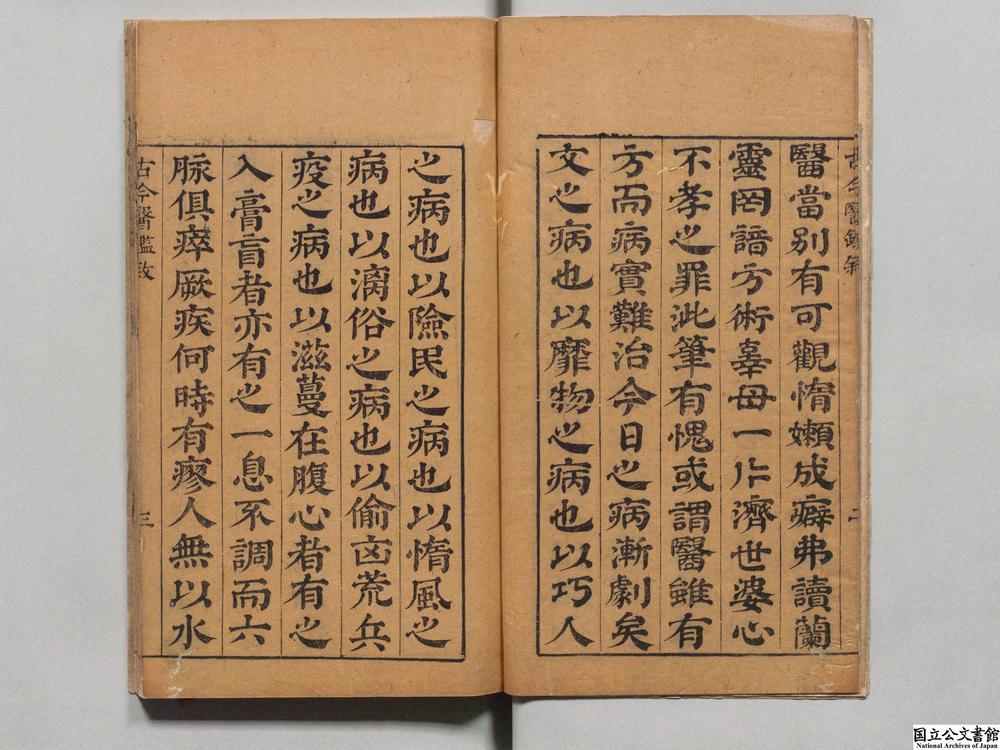 古今醫鑑叙
二
醫當別有可觀惰嬾成癖弗讀蘭
靈罔諳方術辜母一片濟世婆心
不孝之罪泚筆有愧或謂醫雖有
方而病實難治今日之病漸劇矣
文之病也以靡物之病也以巧人
之病也以險民之病也以惰風之
病也以漓俗之病也以偷凶荒兵
疫之病也以滋蔓在腹心者有之
入膏肓者亦有之一息不調而六
脉俱瘁厥疾何時有瘳人無以水
古今醫鑑敘
三
国立公文書館
National Archives of Japan